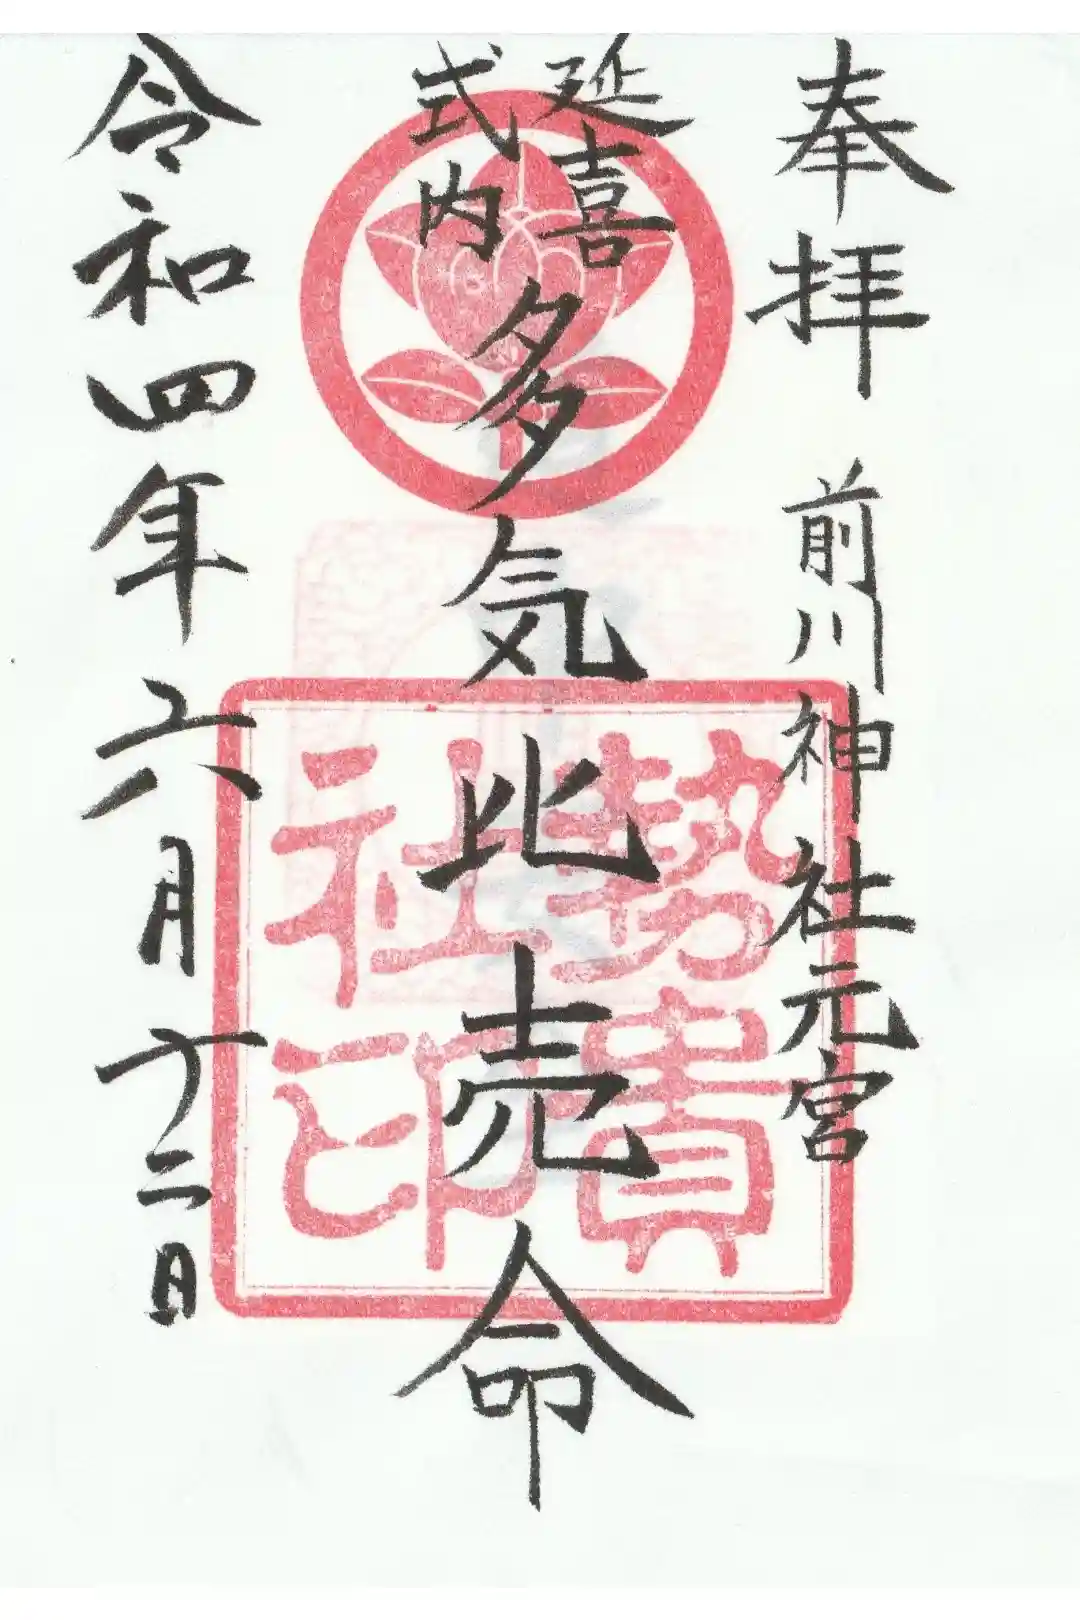 奉拝 前川神社元宮
延喜
式内
多気比売命
勢貴
社印
令和四年六月十二日